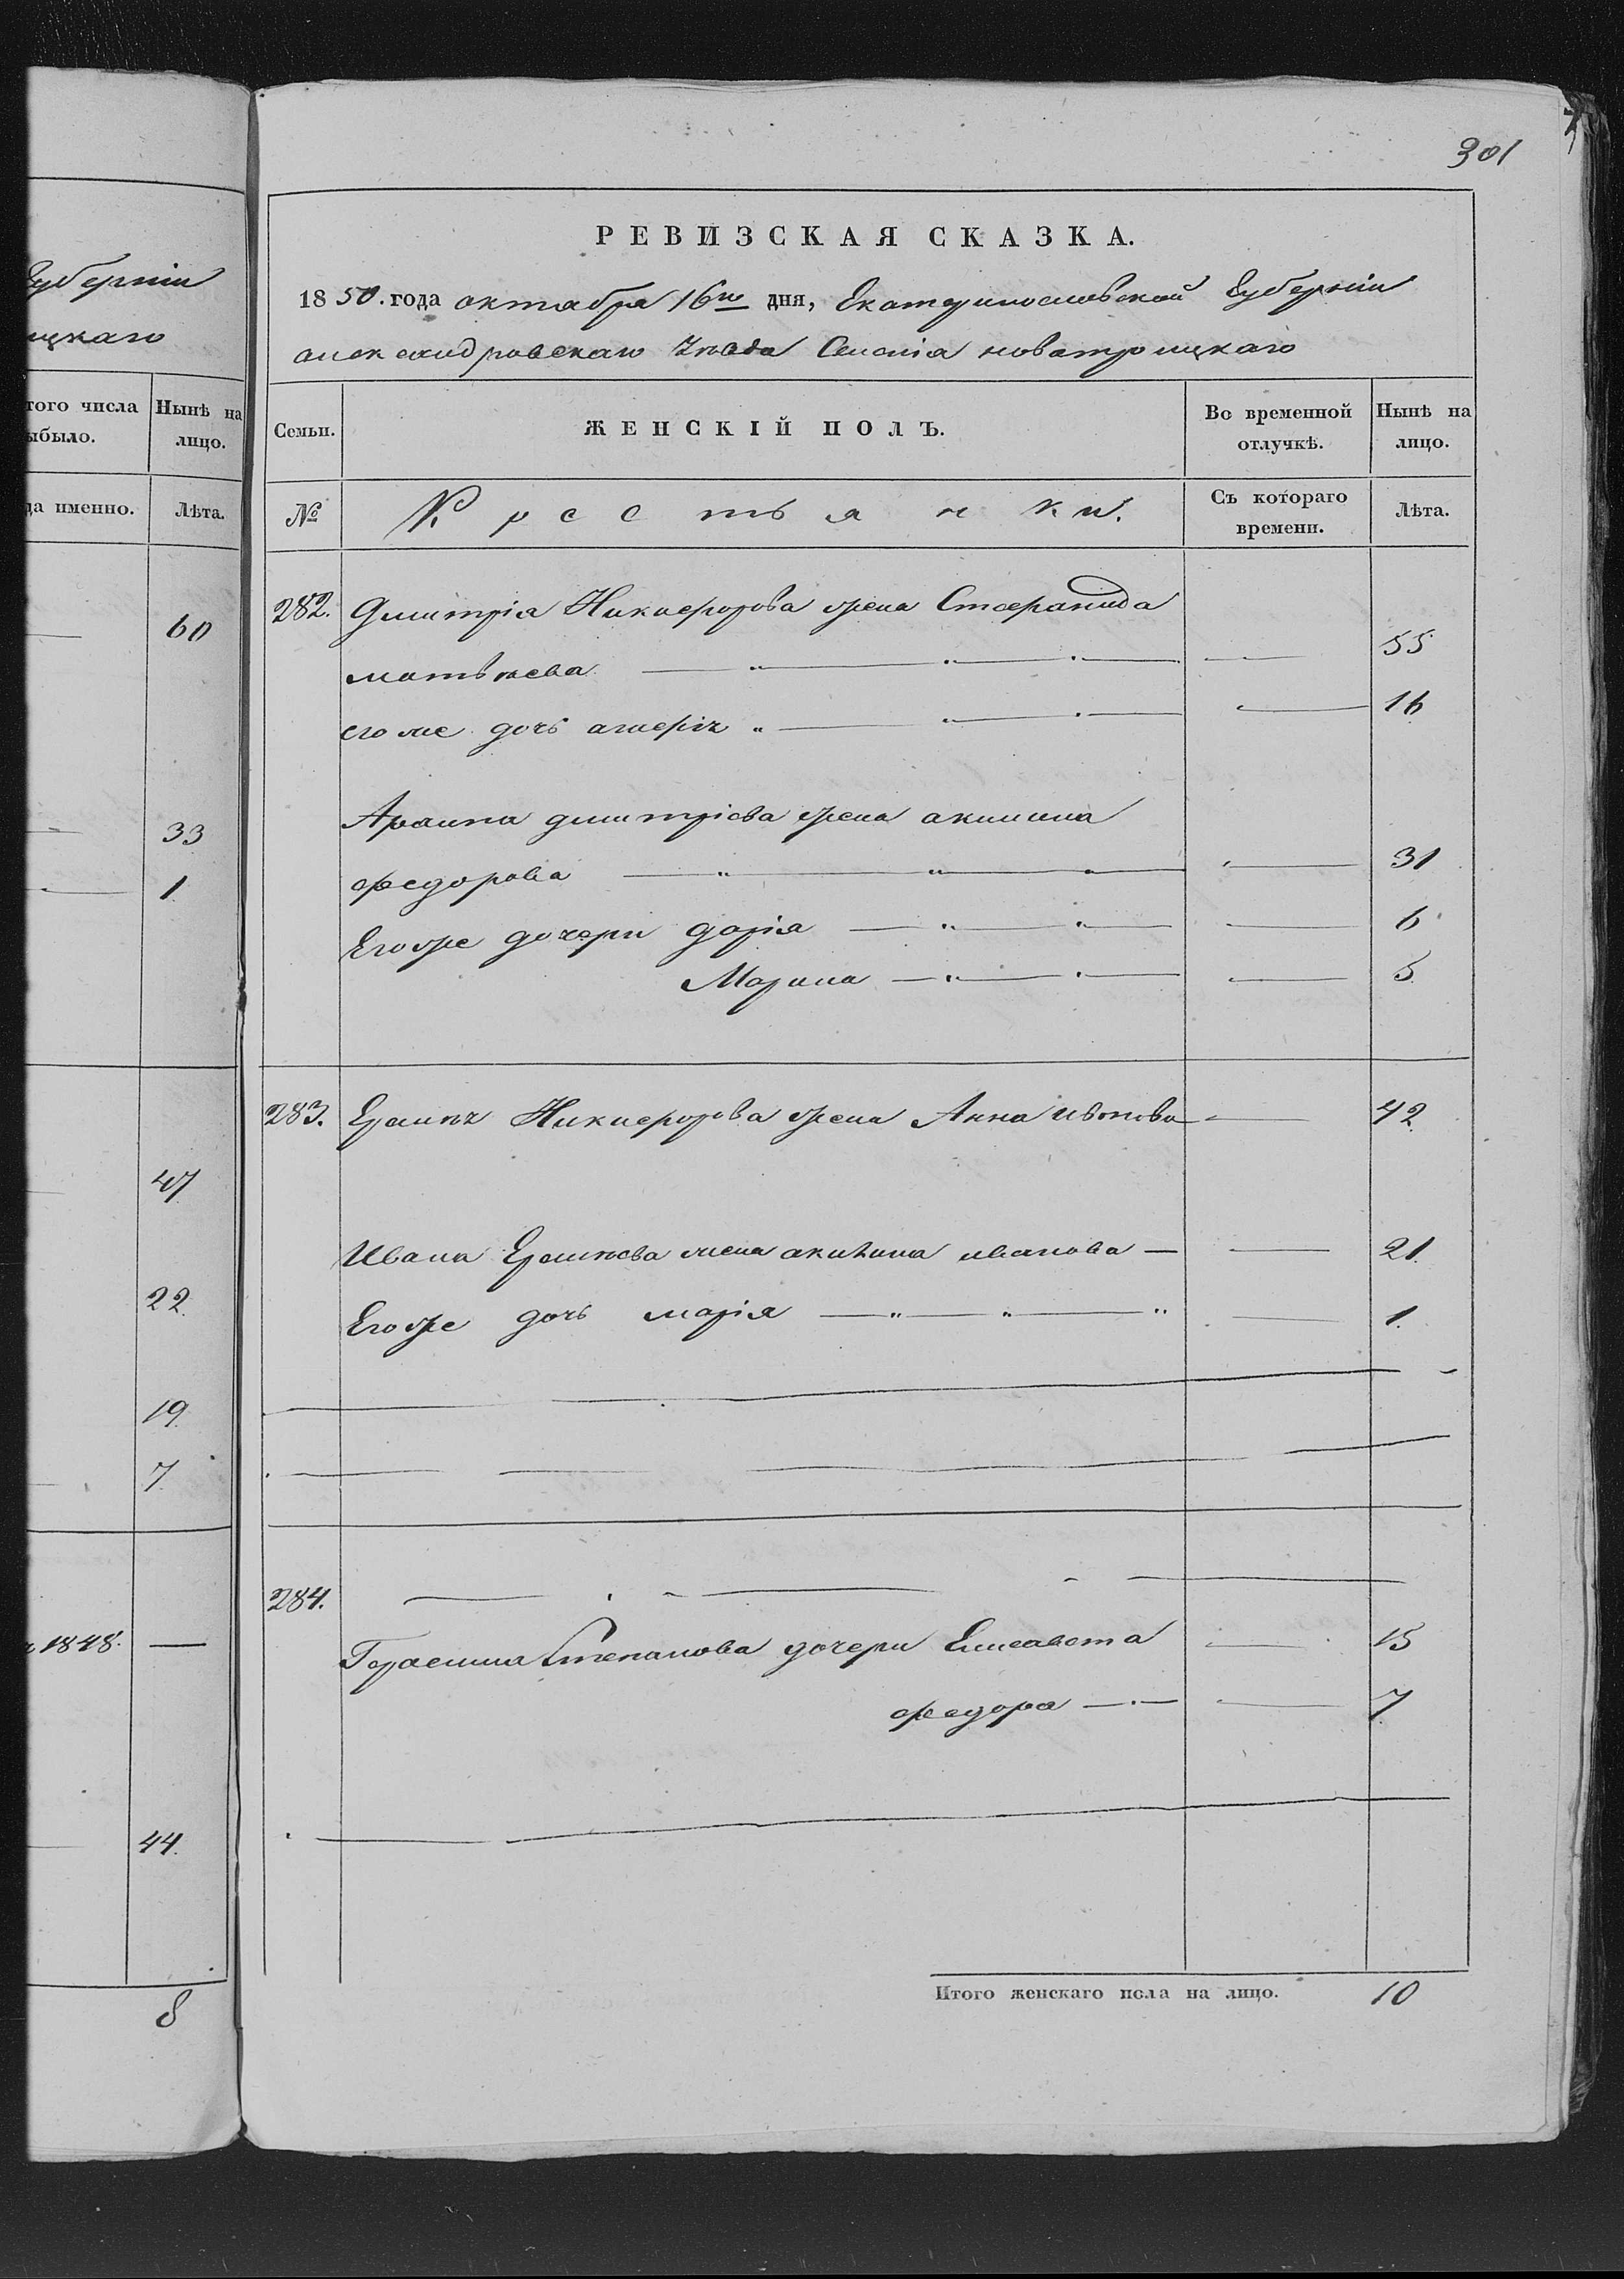 301
Губерніи
ицкаго
того числа
ыбыло.
Нынѣ на
лицо.
да именно.
Лѣта.
60
33
1
47
22.
19.
7
1848. —
44.
8
РЕВИЗСКАЯ СКАЗКА.
1850. года октабря 16го дня, Екатеринославской Губерніи
александровскаго Уѣзда Селенія новотроицкаго
Семьи.
ЖЕНСКІЙ ПОЛЪ.
Во временной
отлучкѣ.
Нынѣ на
лицо.
№
Крестьянки.
Съ котораго
времени.
Лѣта.
282. Димитрія Никифорова жена Стефанида
матвѣева — 55
его же дочь — 16
димитріева жена акилина
федорова — 31
Егоже дочери дарія — 6
Марина — 5
283. Никифорова жена Анна ивонова — 42
Ивана жена акилина иванова — 21.
Егоже дочь марія — 1.
284. —
Герасима Степанова дочери Елисавета — 15
федора — 7
Итого женскаго пола на лицо. 10